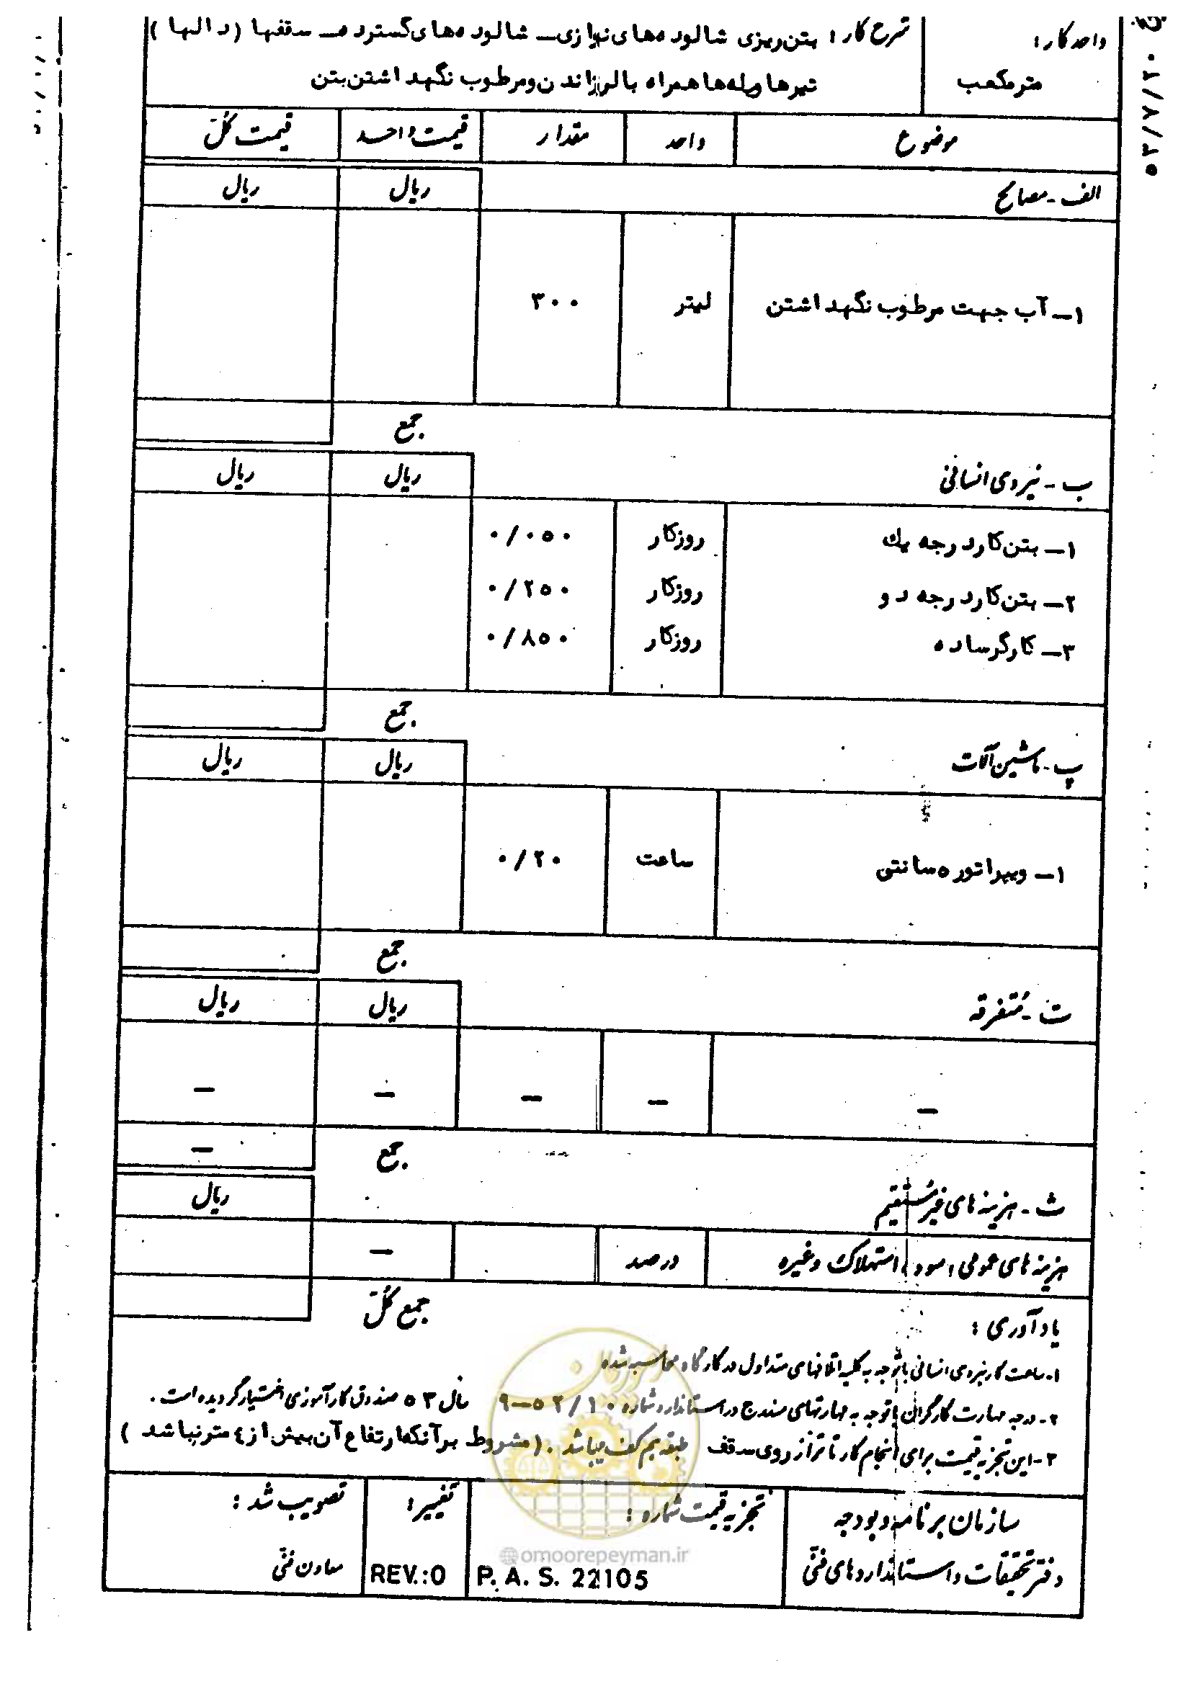 واحد کار :
متر مکعب
شرح کار : بتن ریزی شالوده های نواری ــ شالوده های گسترده ــ سقفها ( دالها )
تیرها و پله ها همراه با لرزاندن و مرطوب نگهداشتن بتن
۵۳/۷/۲۰
موضوع واحد مقدار قیمت واحد قیمت کل
الف - مصالح ریال ریال
۱ــ آب جهت مرطوب نگهداشتن لیتر ۳۰۰
جمع
ب - نیروی انسانی ریال ریال
۱ــ بتن کار درجه یک روزکار ۰/۰۵۰
۲ــ بتن کار درجه دو روزکار ۰/۲۵۰
۳ــ کارگر ساده روزکار ۰/۸۵۰
جمع
پ - ماشین آلات ریال ریال
۱ــ ویبراتور ۵ سانتی ساعت ۰/۲۰
جمع
ت - متفرقه ریال ریال
ــ ــ ــ ــ ــ
جمع ــ
ث - هزینه های غیر مستقیم ریال
هزینه های عمومی ، سود ، استهلاک و غیره درصد ــ
جمع کل
یادآوری :
۱- ساعت کار نیروی انسانی با توجه به کلیه اتلافهای متداول در کارگاه محاسبه شده
۲- درجه مهارت کارگران با توجه به مهارتهای مندرج در استاندارد شماره ۱۰/۵۲-۹ سال ۵۳ صندوق کارآموزی اختیار گردیده است .
۳- این تجزیه قیمت برای انجام کار تا تراز روی سقف طبقه هم کف میباشد . ( مشروط بر آنکه ارتفاع آن بیش از ٤ متر نباشد )
سازمان برنامه و بودجه
دفتر تحقیقات و استانداردهای فنی
تجزیه قیمت شماره :
P. A. S. 22105
تغییر :
REV.:0
تصویب شد :
معاون فنی
@omoorepeyman.ir